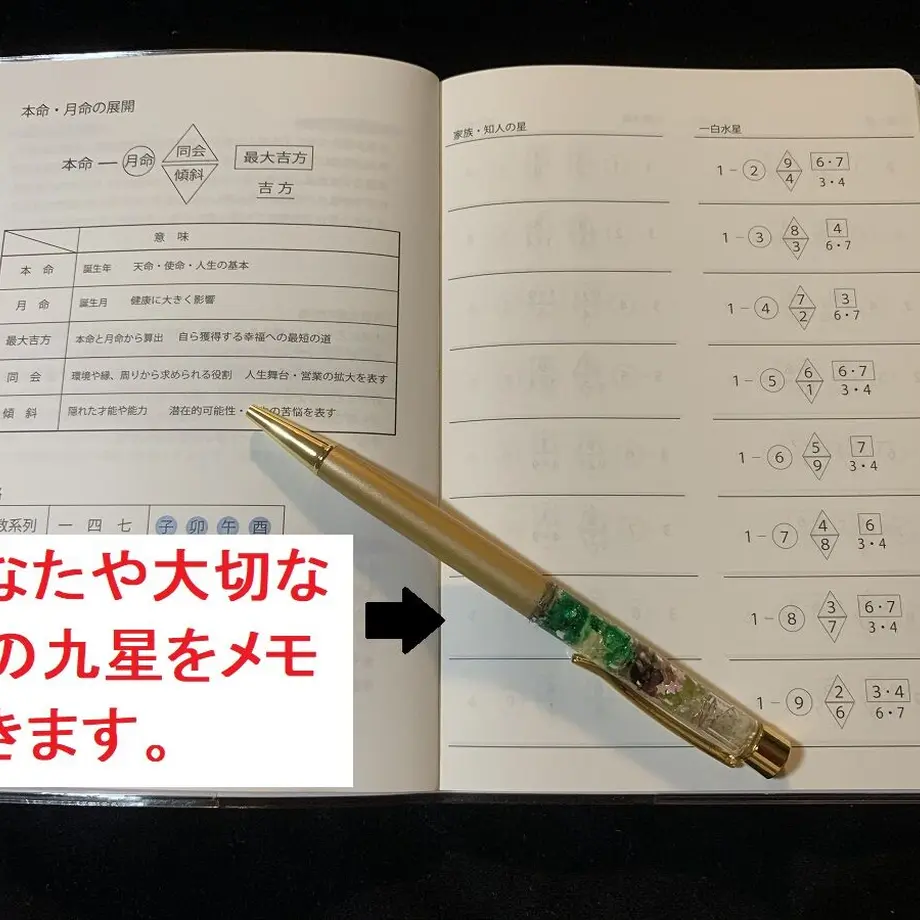 本命・月命の展開
本命 ― 月命 同会 傾斜 最大吉方 吉方
意 味
本 命 誕生年 天命・使命・人生の基本
月 命 誕生月 健康に大きく影響
最大吉方 本命と月命から算出 自ら獲得する幸福への最短の道
同 会 環境や縁、周りから求められる役割 人生舞台・営業の拡大を表す
傾 斜 隠れた才能や能力 潜在的可能性・の苦悩を表す
数系列 一 四 七 子 卯 午 酉
なたや大切な
の九星をメモ
きます。
家族・知人の星
一白水星
1－② 9 4 6・7 3・4
1－③ 8 3 4 6・7
1－④ 7 2 3 6・7
1－⑤ 6 1 6・7 3・4
1－⑥ 5 9 7 3・4
1－⑦ 4 8 6 3・4
1－⑧ 3 7 6・7 3・4
1－⑨ 2 6 3・4 6・7